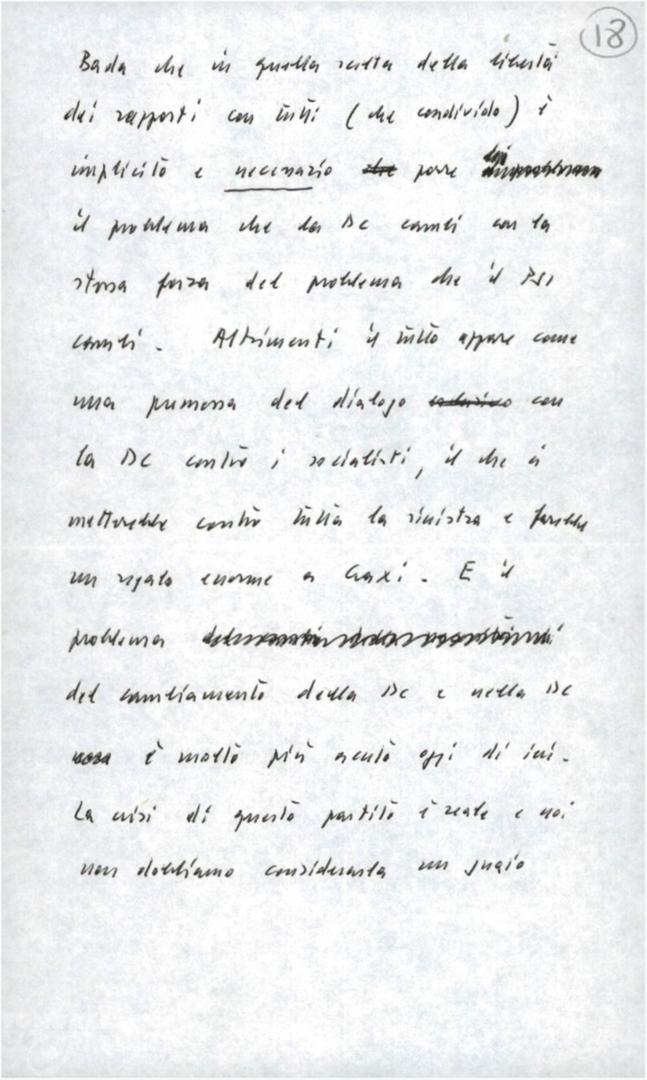 18
Bada che in quella scelta della libertà
dei rapporti con tutti (che condivido) è
implicito e necessario che porre
il problema che la DC cambi con la
stessa forza del problema che il PSI
cambi. Altrimenti il tutto appare come
una premessa del dialogo esclusivo con
la DC contro i socialisti, il che ci
metterebbe contro tutta la sinistra e farebbe
un regalo enorme a Craxi. E il
problema
del cambiamento della DC e nella DC
è molto più acuto oggi di ieri.
La crisi di questo partito è reale e noi
non dobbiamo considerarla un guaio